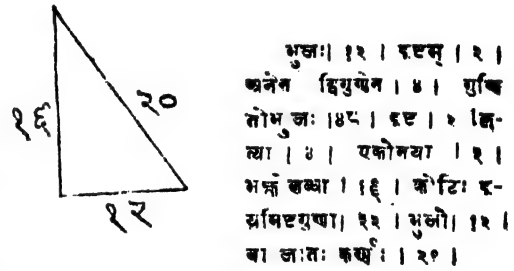 १६
२०
१२
भुजः। १२ । इष्टम् । २ ।
अनेन द्विगुणेन । ४ । गुणि
तोभुजः ।४८ । इष्ट । २ ।
त्या । ४ । एकोनया । ३ ।
भक्तं लब्धा । १६ । कोटिः इ-
यमिष्टगुणा । ३२ । भुजो । १२ ।
ना जातः कर्णः । २० ।